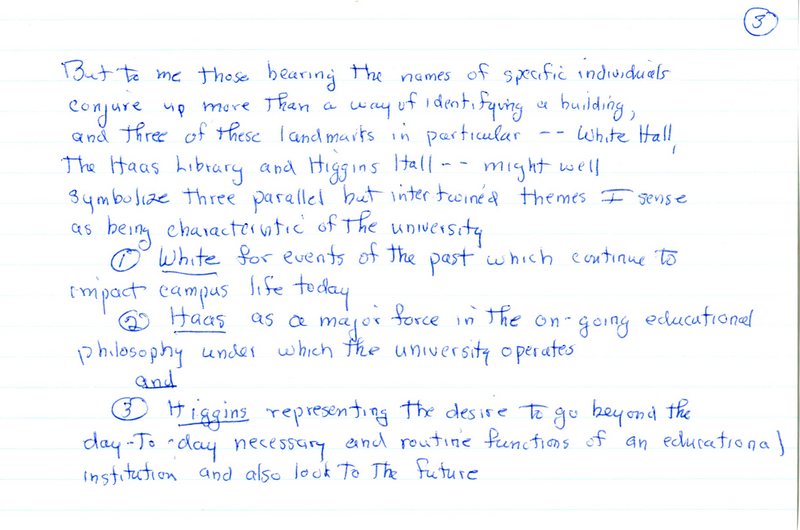 3
But to me those bearing the names of specific individuals
conjure up more than a way of identifying a building,
and three of these landmarks in particular -- White Hall,
The Haas Library and Higgins Hall -- might well
symbolize three parallel but intertwined themes I sense
as being characteristic of the university
① White for events of the past which continue to
impact campus life today
② Haas as a major force in the on-going educational
philosophy under which the university operates
and
③ Higgins representing the desire to go beyond the
day-to-day necessary and routine functions of an educational
institution and also look to the future